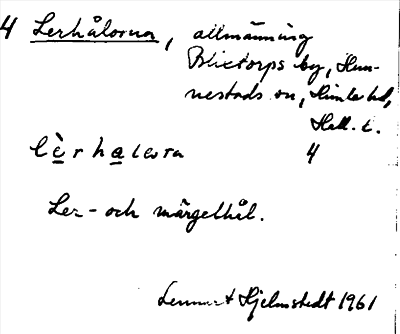 4 Lerhålorna, allmänning
Blixtorps by, Hun-
nestads sn, Himle hd,
Hall. l.
lèrhalɵra 4
Ler- och märgelhål.
Lennart Hjelmstedt 1961